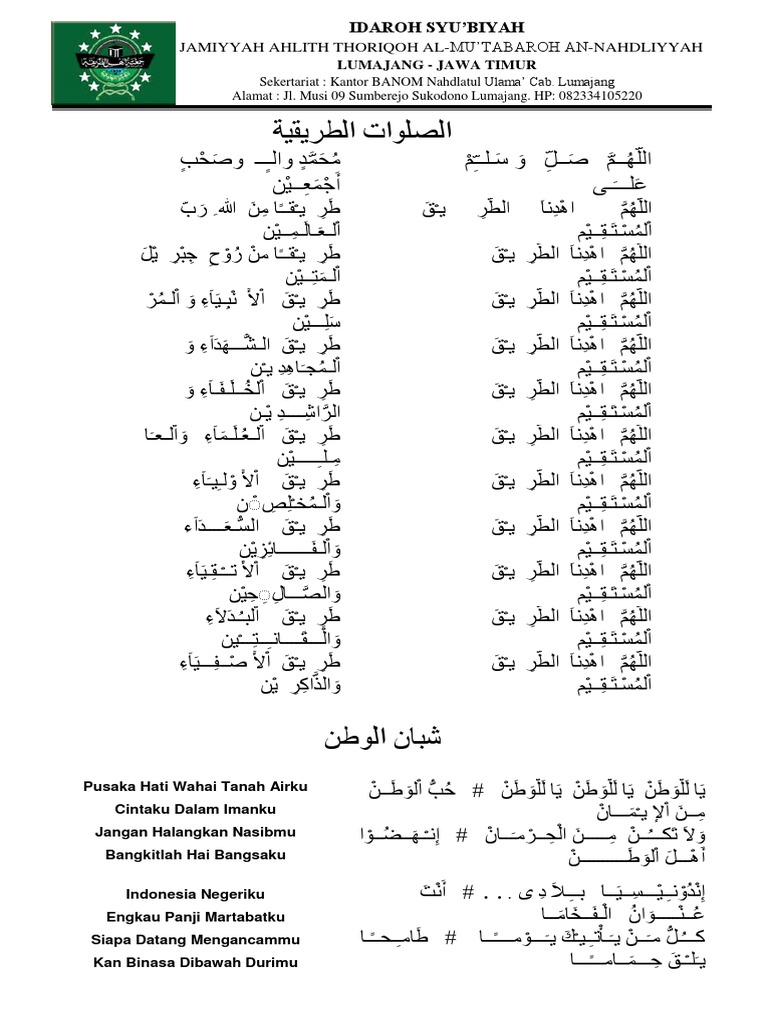 IDAROH SYU’BIYAH
JAMIYYAH AHLITH THORIQOH AL-MU’TABAROH AN-NAHDLIYYAH
LUMAJANG - JAWA TIMUR
Sekertariat : Kantor BANOM Nahdlatul Ulama’ Cab. Lumajang
Alamat : Jl. Musi 09 Sumberejo Sukodono Lumajang. HP: 082334105220
الصلوات الطريقية
اللّهُمَّ صَلِّ وَ سَلِّمْ
عَلَى
مُحَمَّدٍ والٍ وصَحْبٍ
أَجْمَعِيْن
اللّهُمَّ اهْدِنَا الطَّرِ يْقَ
اْلمُسْتَقِيْم
طَرِ يْقًا مِنَ اللهِ رَبّ
اْلعَالَمِيْن
اللّهُمَّ اهْدِنَا الطَّرِ يْقَ
اْلمُسْتَقِيْم
طَرِ يْقًا منْ رُوْحِ جِبْرِ يْلَ
اْلمَتِيْن
اللّهُمَّ اهْدِنَا الطَّرِ يْقَ
اْلمُسْتَقِيْم
طَرِ يْقَ اْلأَ نْبِيَاءِ وَ اْلمُرْ
سَلِيْن
اللّهُمَّ اهْدِنَا الطَّرِ يْقَ
اْلمُسْتَقِيْم
طَرِ يْقَ الشُّهَدَاءِ وَ
اْلمُجَاهِدِ يْن
اللّهُمَّ اهْدِنَا الطَّرِ يْقَ
اْلمُسْتَقِيْم
طَرِ يْقَ اْلخُلَفَاءِ وَ
الرَّاشِدِ يْن
اللّهُمَّ اهْدِنَا الطَّرِ يْقَ
اْلمُسْتَقِيْم
طَرِ يْقَ اْلعُلَمَاءِ وَاْلعَا
مِلِيْن
اللّهُمَّ اهْدِنَا الطَّرِ يْقَ
اْلمُسْتَقِيْم
طَرِ يْقَ اْلأَ وْلِيَاءِ
وَاْلمُخْلِصِْن
اللّهُمَّ اهْدِنَا الطَّرِ يْقَ
اْلمُسْتَقِيْم
طَرِ يْقَ السُّعَدَاء
وَاْلفَائِزِيْن
اللّهُمَّ اهْدِنَا الطَّرِ يْقَ
اْلمُسْتَقِيْم
طَرِ يْقَ اْلأَ تْقِيَاءِ
وَالصَّالِحِيْن
اللّهُمَّ اهْدِنَا الطَّرِ يْقَ
اْلمُسْتَقِيْم
طَرِ يْقَ اْلبُدَلاَءِ
وَاْلقَانِتِيْن
اللّهُمَّ اهْدِنَا الطَّرِ يْقَ
اْلمُسْتَقِيْم
طَرِ يْقَ اْلأَ صْفِيَاءِ
وَالذَّاكِرِ يْن
شبان الوطن
يَا لَلْوَطَنْ يَا لَلْوَطَنْ يَا لَلْوَطَنْ # حُبُّ اْلوَطَنْ
مِنَ اْلإِ يْمَانْ
وَلاَ تَكُنْ مِنَ الْحِرْمَانْ # إِنْهَضُوْا
أَهْلَ اْلوَطَنْ
إِنْدُوْنِيْسِيَا بِلاَدِى . . . # أَنْتَ
عُنْوَانُ الْفَخَامَا
كُلُّ مَنْ يَأْتِيْكَ يَوْمًا # طَامِحًا
يَلْقَ حِمَامًا
Pusaka Hati Wahai Tanah Airku
Cintaku Dalam Imanku
Jangan Halangkan Nasibmu
Bangkitlah Hai Bangsaku
Indonesia Negeriku
Engkau Panji Martabatku
Siapa Datang Mengancammu
Kan Binasa Dibawah Durimu